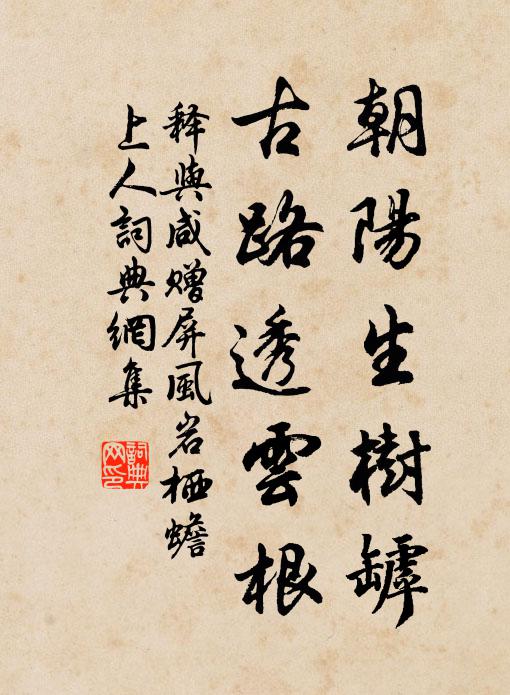 朝陽生樹罅
古路透雲根
釋與咸贈屏風岩栖蟾
上人詞典網集
詞典网印